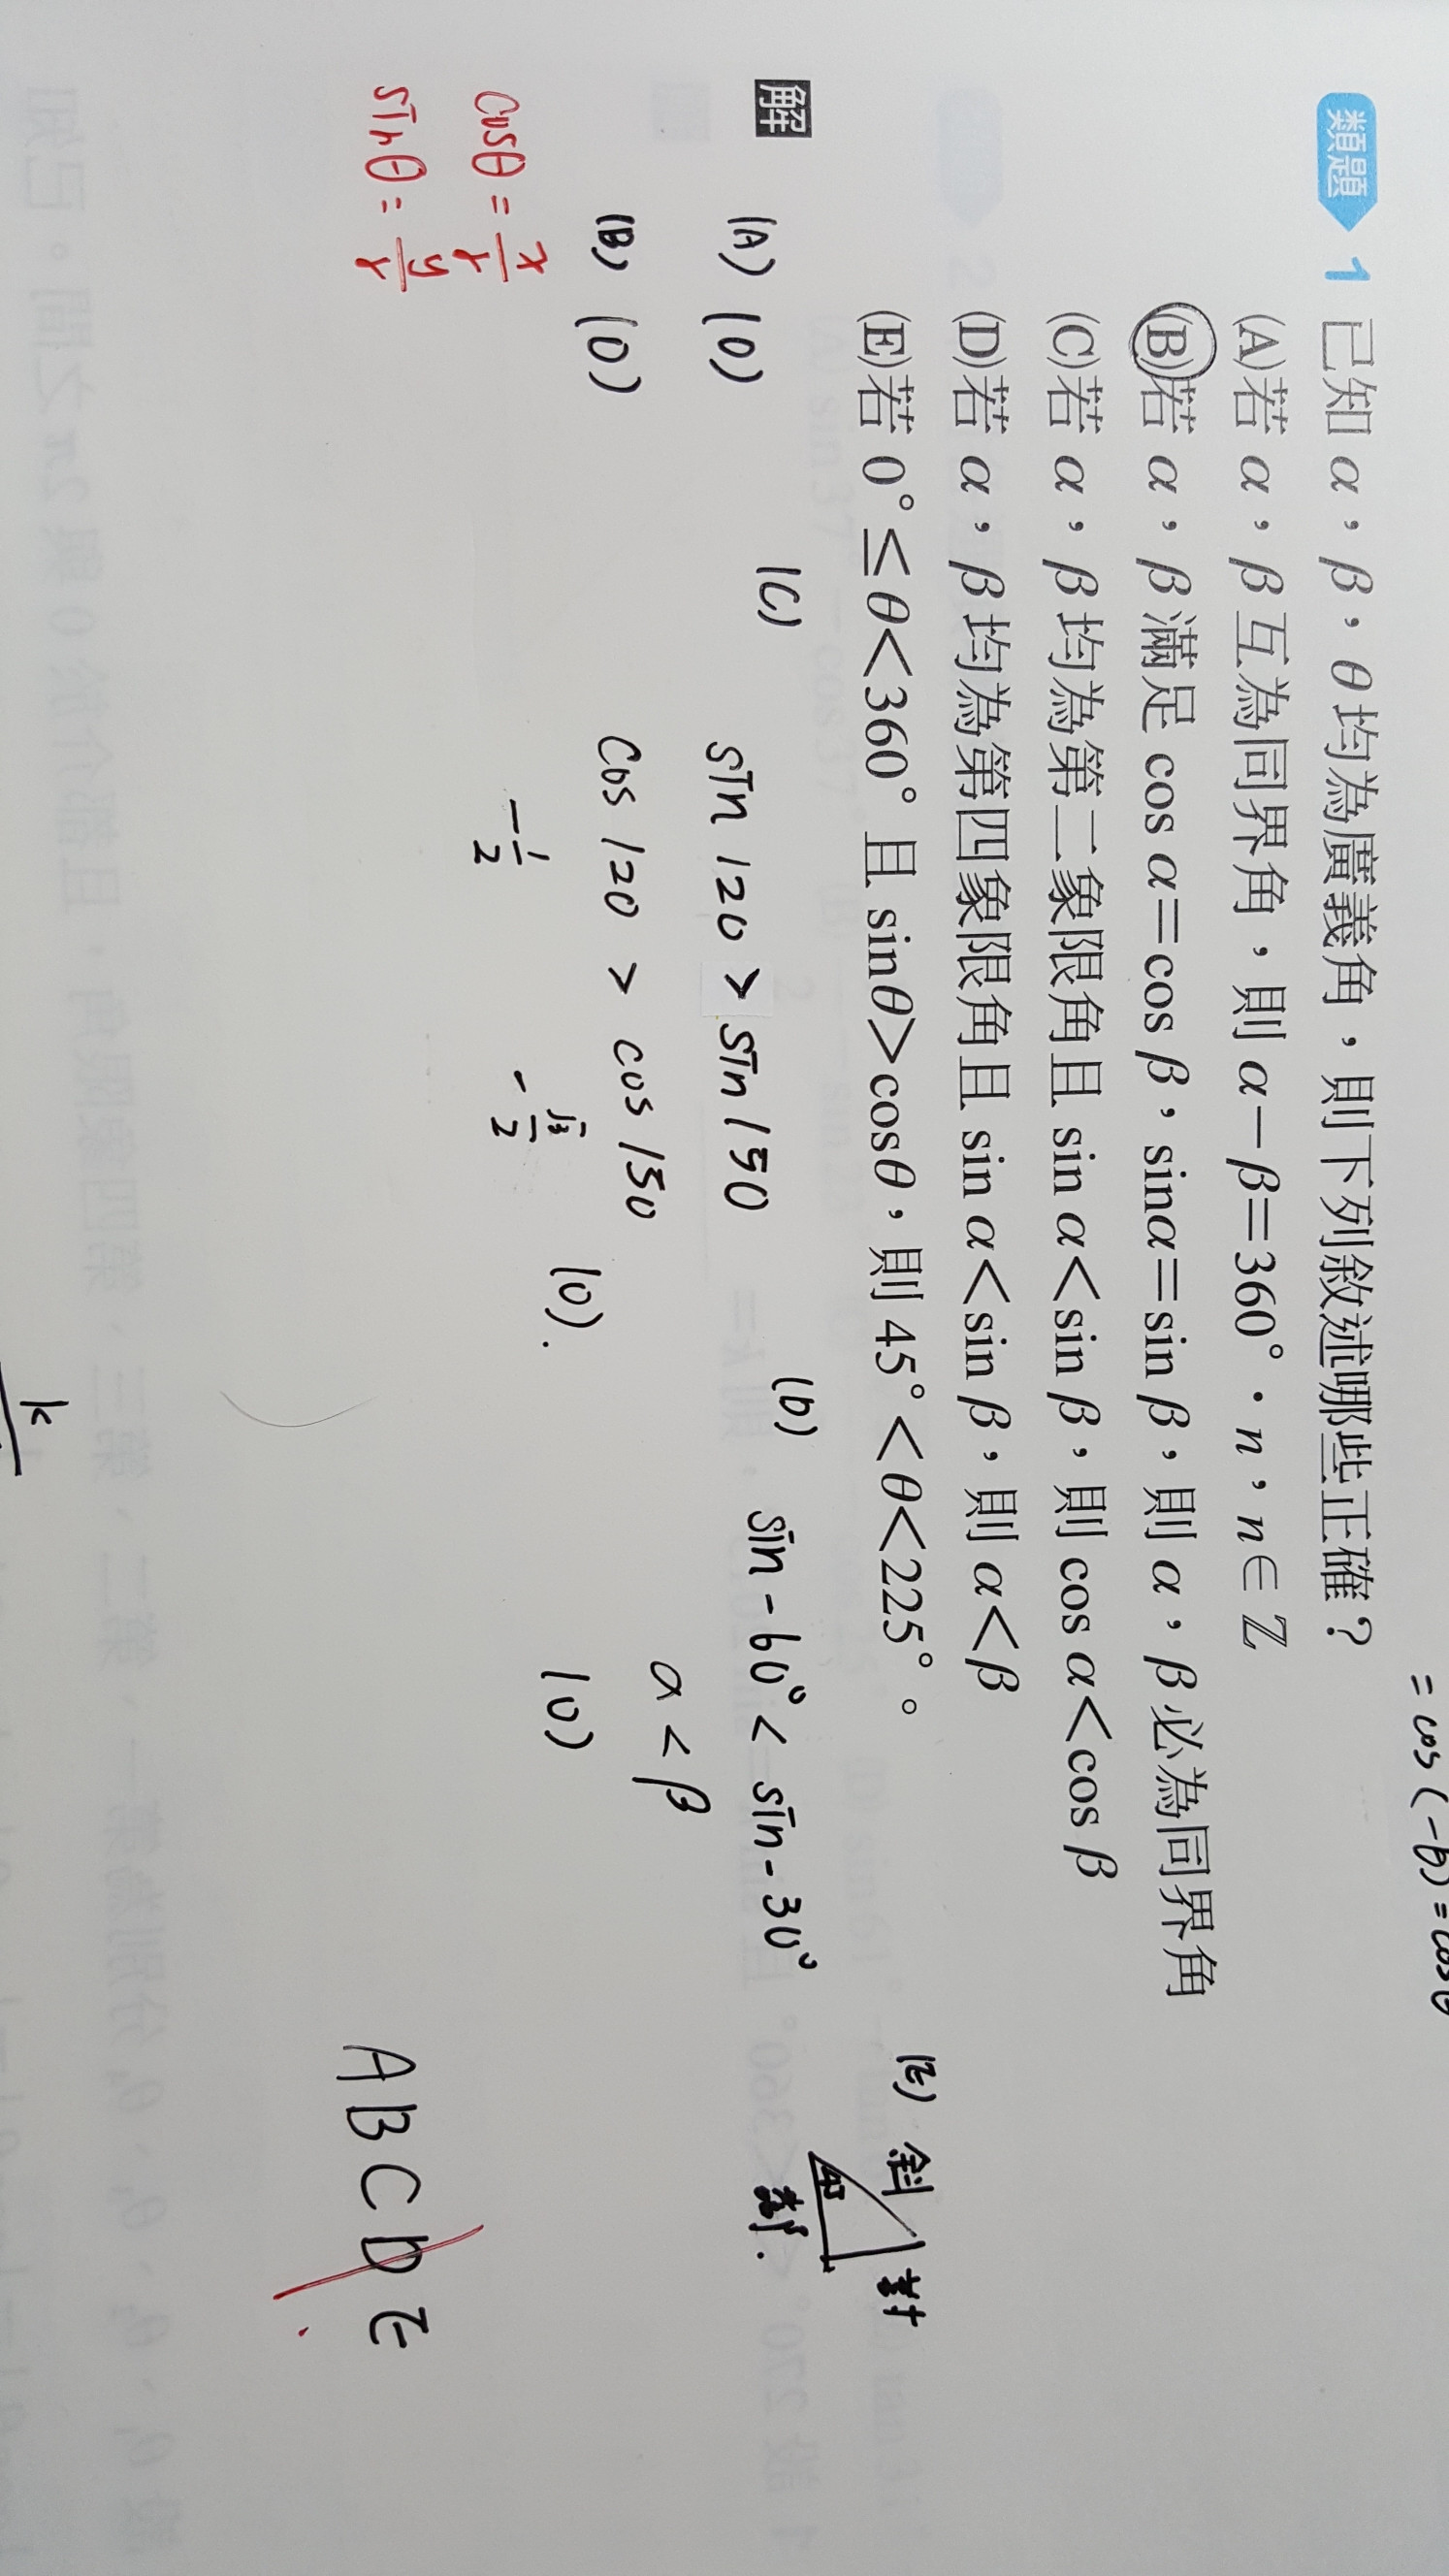 = cos (-θ) = cosθ
類題 1 已知 α，β，θ 均為廣義角，則下列敘述哪些正確？
(A)若 α，β 互為同界角，則 α－β＝360°．n，n∈ℤ
(B)若 α，β 滿足 cos α＝cos β，sinα＝sin β，則 α，β 必為同界角
(C)若 α，β 均為第二象限角且 sin α＜sin β，則 cos α＜cos β
(D)若 α，β 均為第四象限角且 sin α＜sin β，則 α＜β
(E)若 0°≤θ＜360° 且 sinθ＞cosθ，則 45°＜θ＜225°。
解
(A) (O)
(B) (O)
cosθ = x/r
sinθ = y/r
(C)
sin 120 > sin 150
cos 120 > cos 150
-1/2 -√3/2
(O).
(D) sin -60° < sin -30°
α < β
(O)
(E) 斜
45
對
鄰.
A B C D E
k